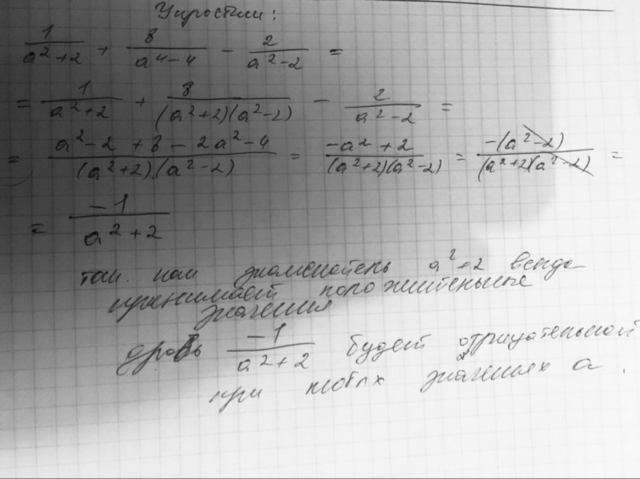 Упростим:
1/(a²+2) + 8/(a⁴-4) - 2/(a²-2) =
= 1/(a²+2) + 8/((a²+2)(a²-2)) - 2/(a²-2) =
= (a²-2+8-2a²-4)/((a²+2)(a²-2)) = (-a²+2)/((a²+2)(a²-2)) = (-(a²-2))/((a²+2)(a²-2)) =
= -1/(a²+2)
так как знаменатель a²+2 всегда
принимает положительные
значения
дробь -1/(a²+2) будет отрицательной
при любых значениях a.